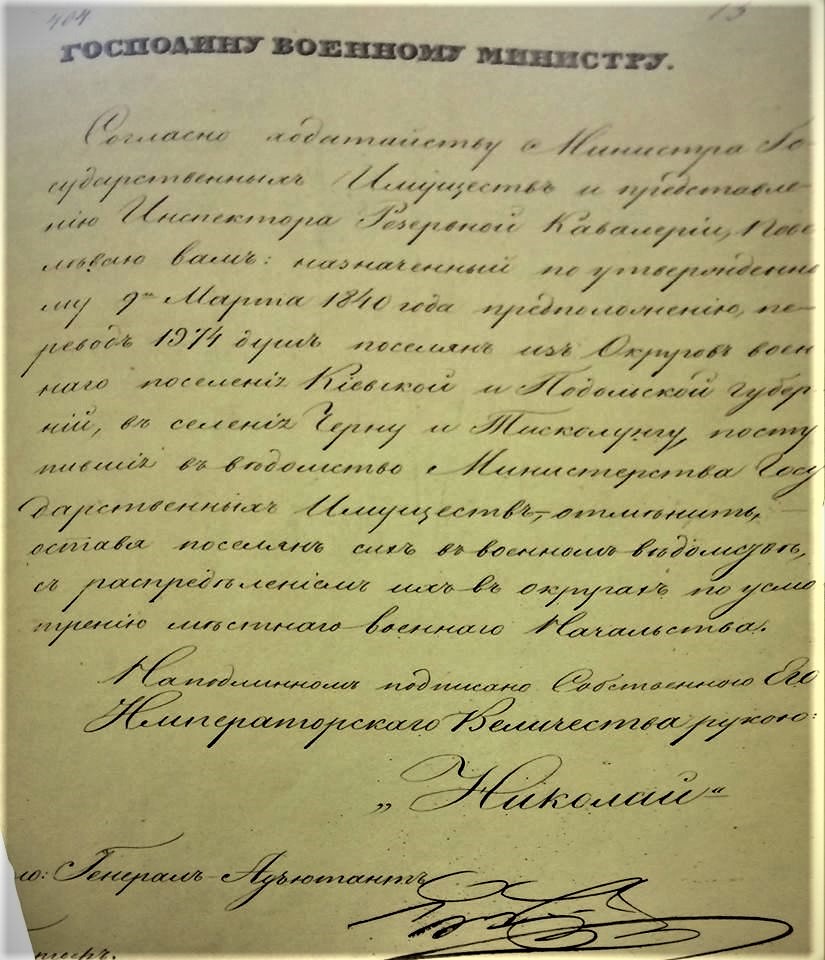 404
13
ГОСПОДИНУ ВОЕННОМУ МИНИСТРУ.
Согласно ходатайству Министра Го-
сударственныхъ Имуществъ и представле-
нію Инспектора Резервной Кавалеріи, Пове-
лѣваю вамъ: назначенный по утвержденно-
му 9го Марта 1840 года предположенію, пе-
реводъ 1974 душъ поселянъ изъ Округовъ воен
наго поселенія Кіевской и Подольской губер
ній, въ селенія Черну и Тисколунгу, посту
пившія въ вѣдомство Министерства Госу
дарственныхъ Имуществъ, отмѣнить,
оставя поселянъ сихъ въ военномъ вѣдомствѣ,
съ распредѣленіемъ ихъ въ округахъ по усмо
трѣнію мѣстнаго военнаго Начальства.
На подлинномъ подписано Собственною Его
Императорскаго Величества рукою:
„Николай"
ло: Генералъ-Адъютантъ